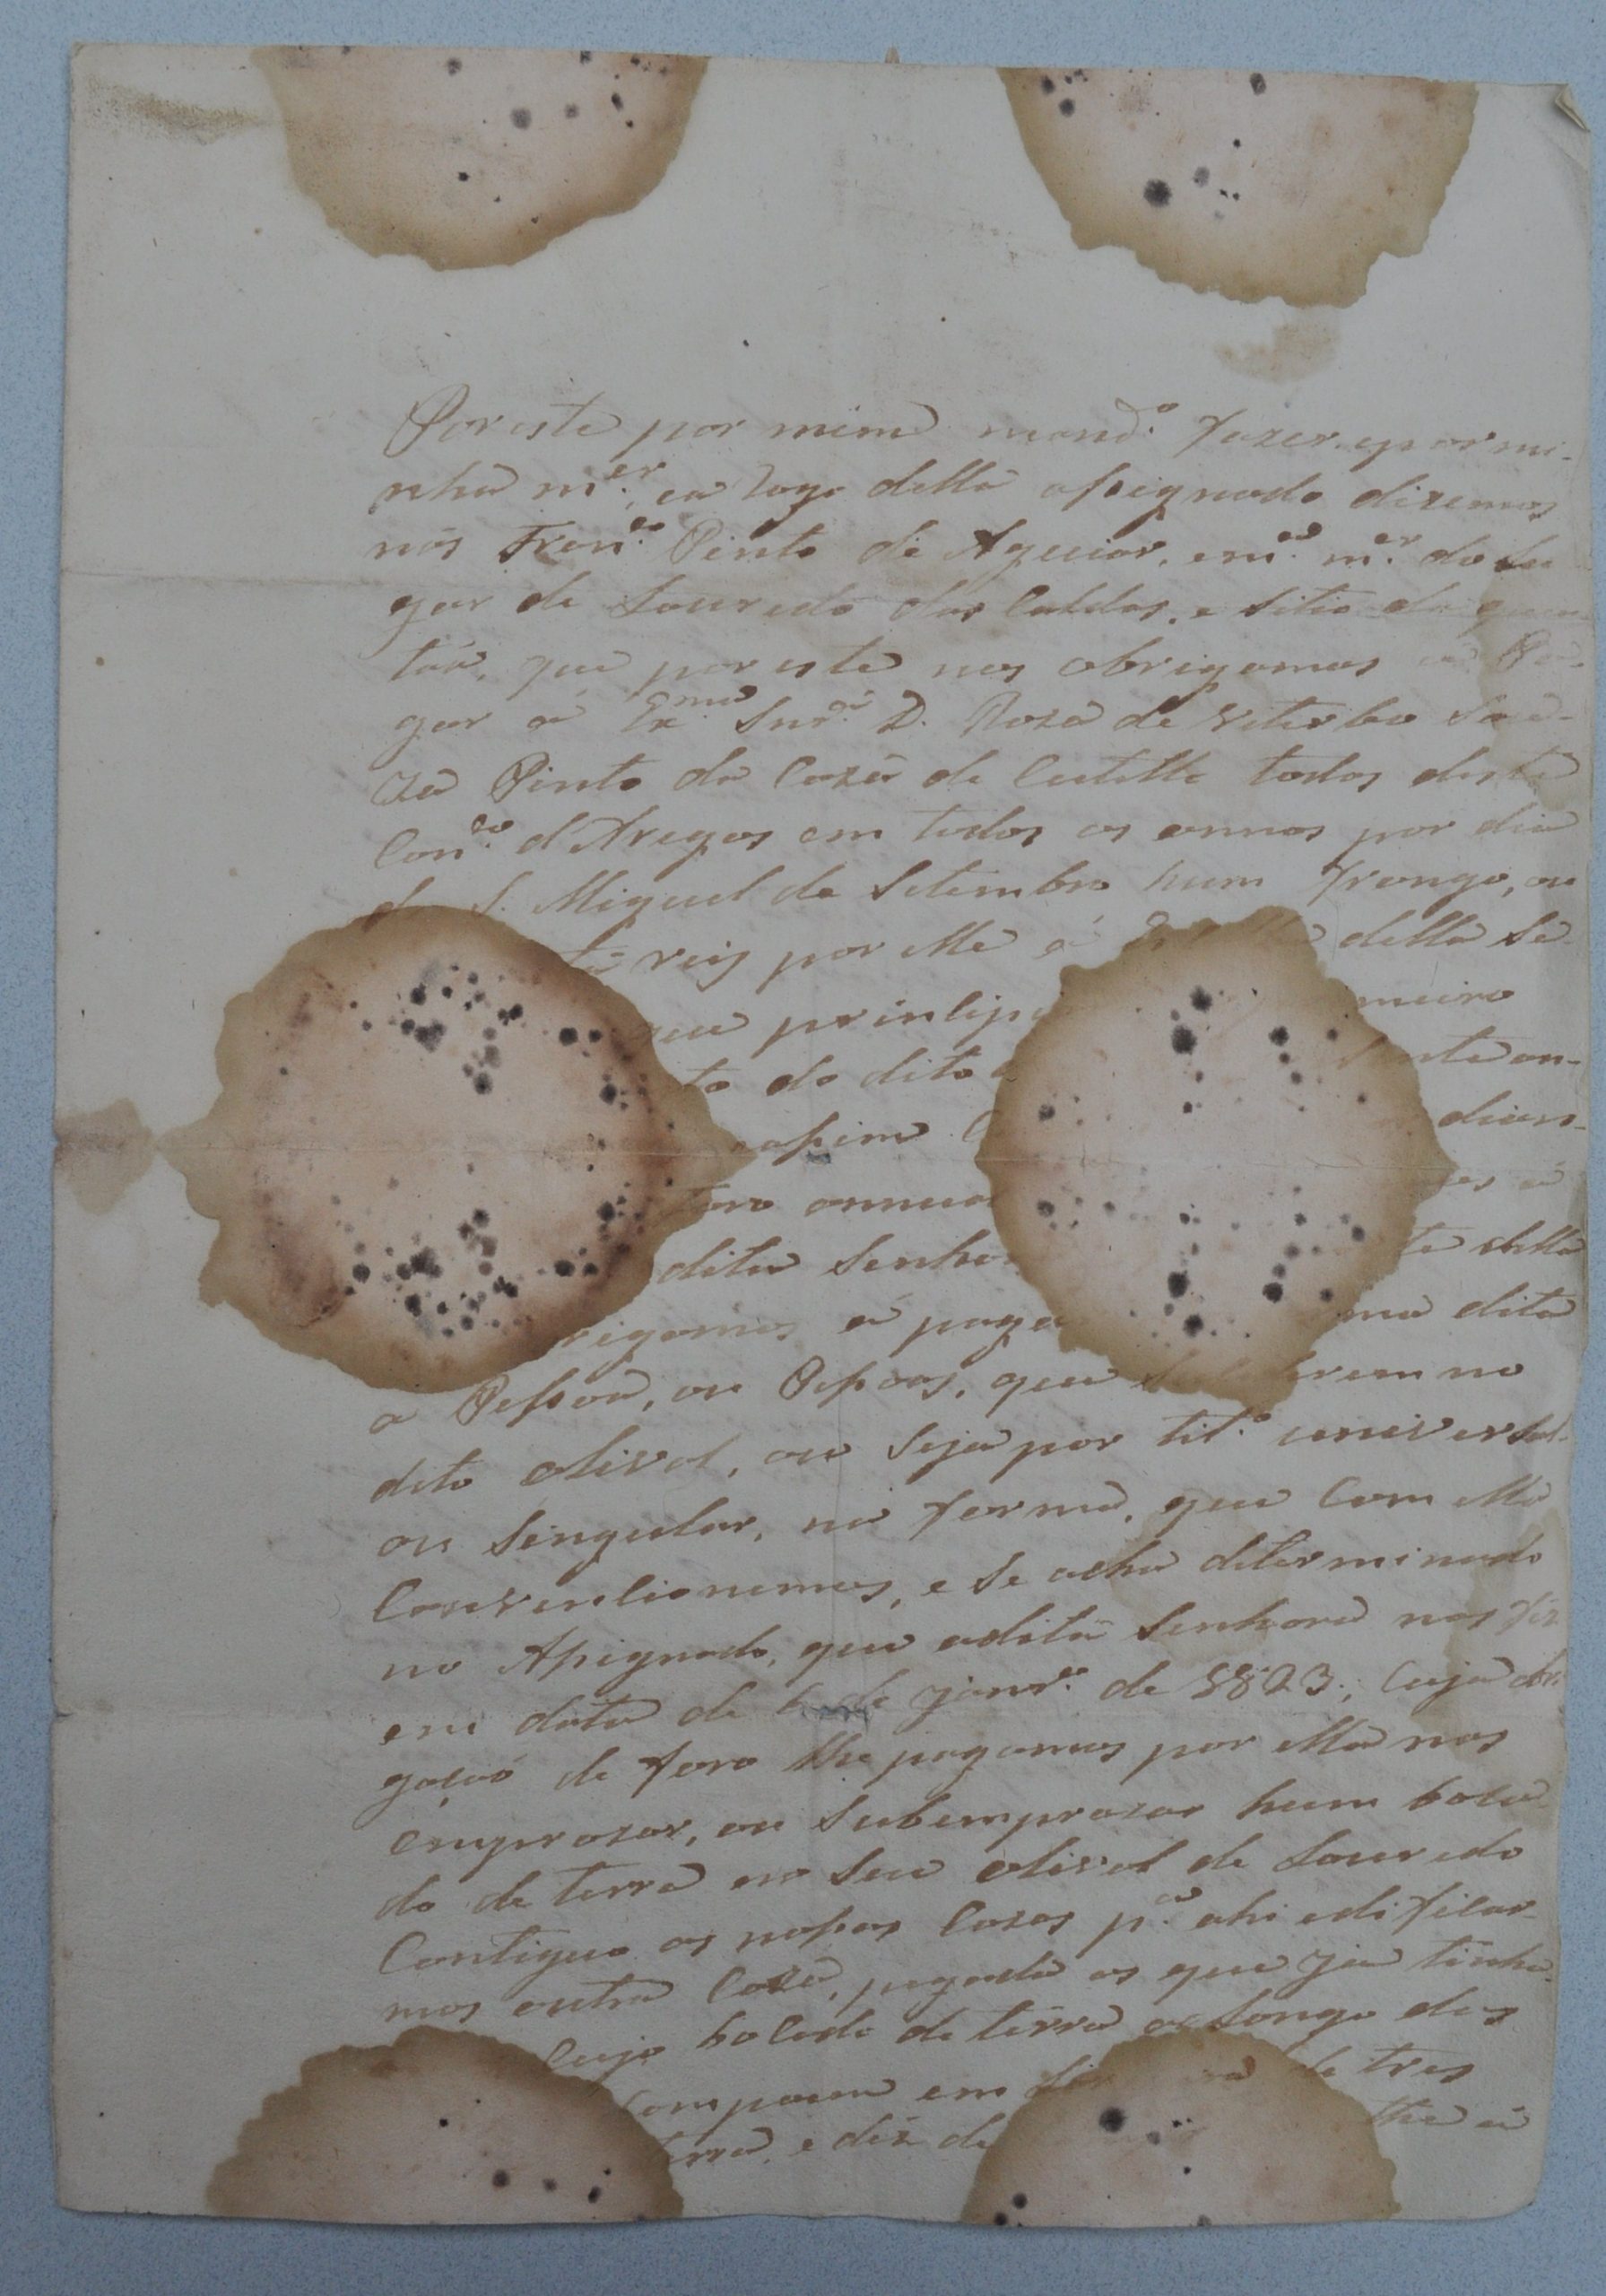 Por este por mim mand.º fazer, e por mi-
nha m.er, e a rogo della assignado dizemos
nós Fran.co Pinto de Aguiar, e m.a m.er do Lu
gar de Louredo das Caldas, e sitio da quin
tãa, que por este nos obrigamos a Pa-
gar á Ex.ma Snr.a D. Roza de Viterbo Sou-
za Pinto da Caza de Cutello todos deste
Con.co d'Aregos em todos os annos por dia
de S. Miguel de Setembro hum frango, ou
reis por elle á della Se-
que princip meiro
to do dito ente an-
assim dian-
foro annua es á
dita Senhor te della
rigamos á paga ma dita
a Pessoa, ou Pessoas, que rem no
dito olival, ou seja por tit.º universal-
ou singular, na forma, que com ella
Convencionemos, e se acha determinado
no Assignado, que a dita Senhora nos fez
em data de de Janr.º de 1823; Cuja obri
gação de foro lhe pagamos por ella nos
emprazar, ou Subemprazar hum boca-
do de terra no seu olival de Louredo
Contiguo as nossas Cazas p.a ahi edificar-
mos outra Caza, pegada as que já tinha-
Cujo bocado de terra ao longo das
compoem em de tres
terra, e dez de lhe á